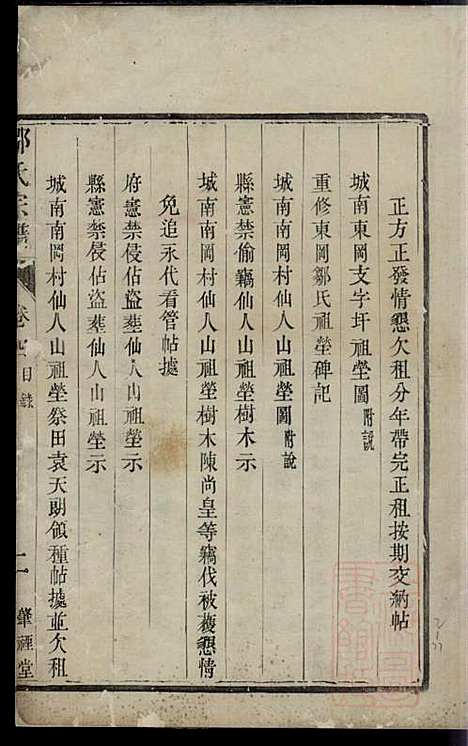 正方正發情懇欠租分年帶完正租按期交納帖
城南東岡支字圩祖塋圖附説
重修東岡鄒氏祖塋碑記
城南南岡村仙人山祖塋圖附說
縣憲禁偷竊仙人山祖塋樹木示
城南南岡村仙人山祖塋樹木陳尚皇等竊伐被獲懇情
免追永代看管帖據
府憲禁侵佔盜塟仙人山祖塋示
縣憲禁侵佔盜塟仙人山祖塋示
城南南岡村仙人山祖塋祭田袁天明領種帖據並欠租
鄒氏宗譜
目錄
肇禋堂